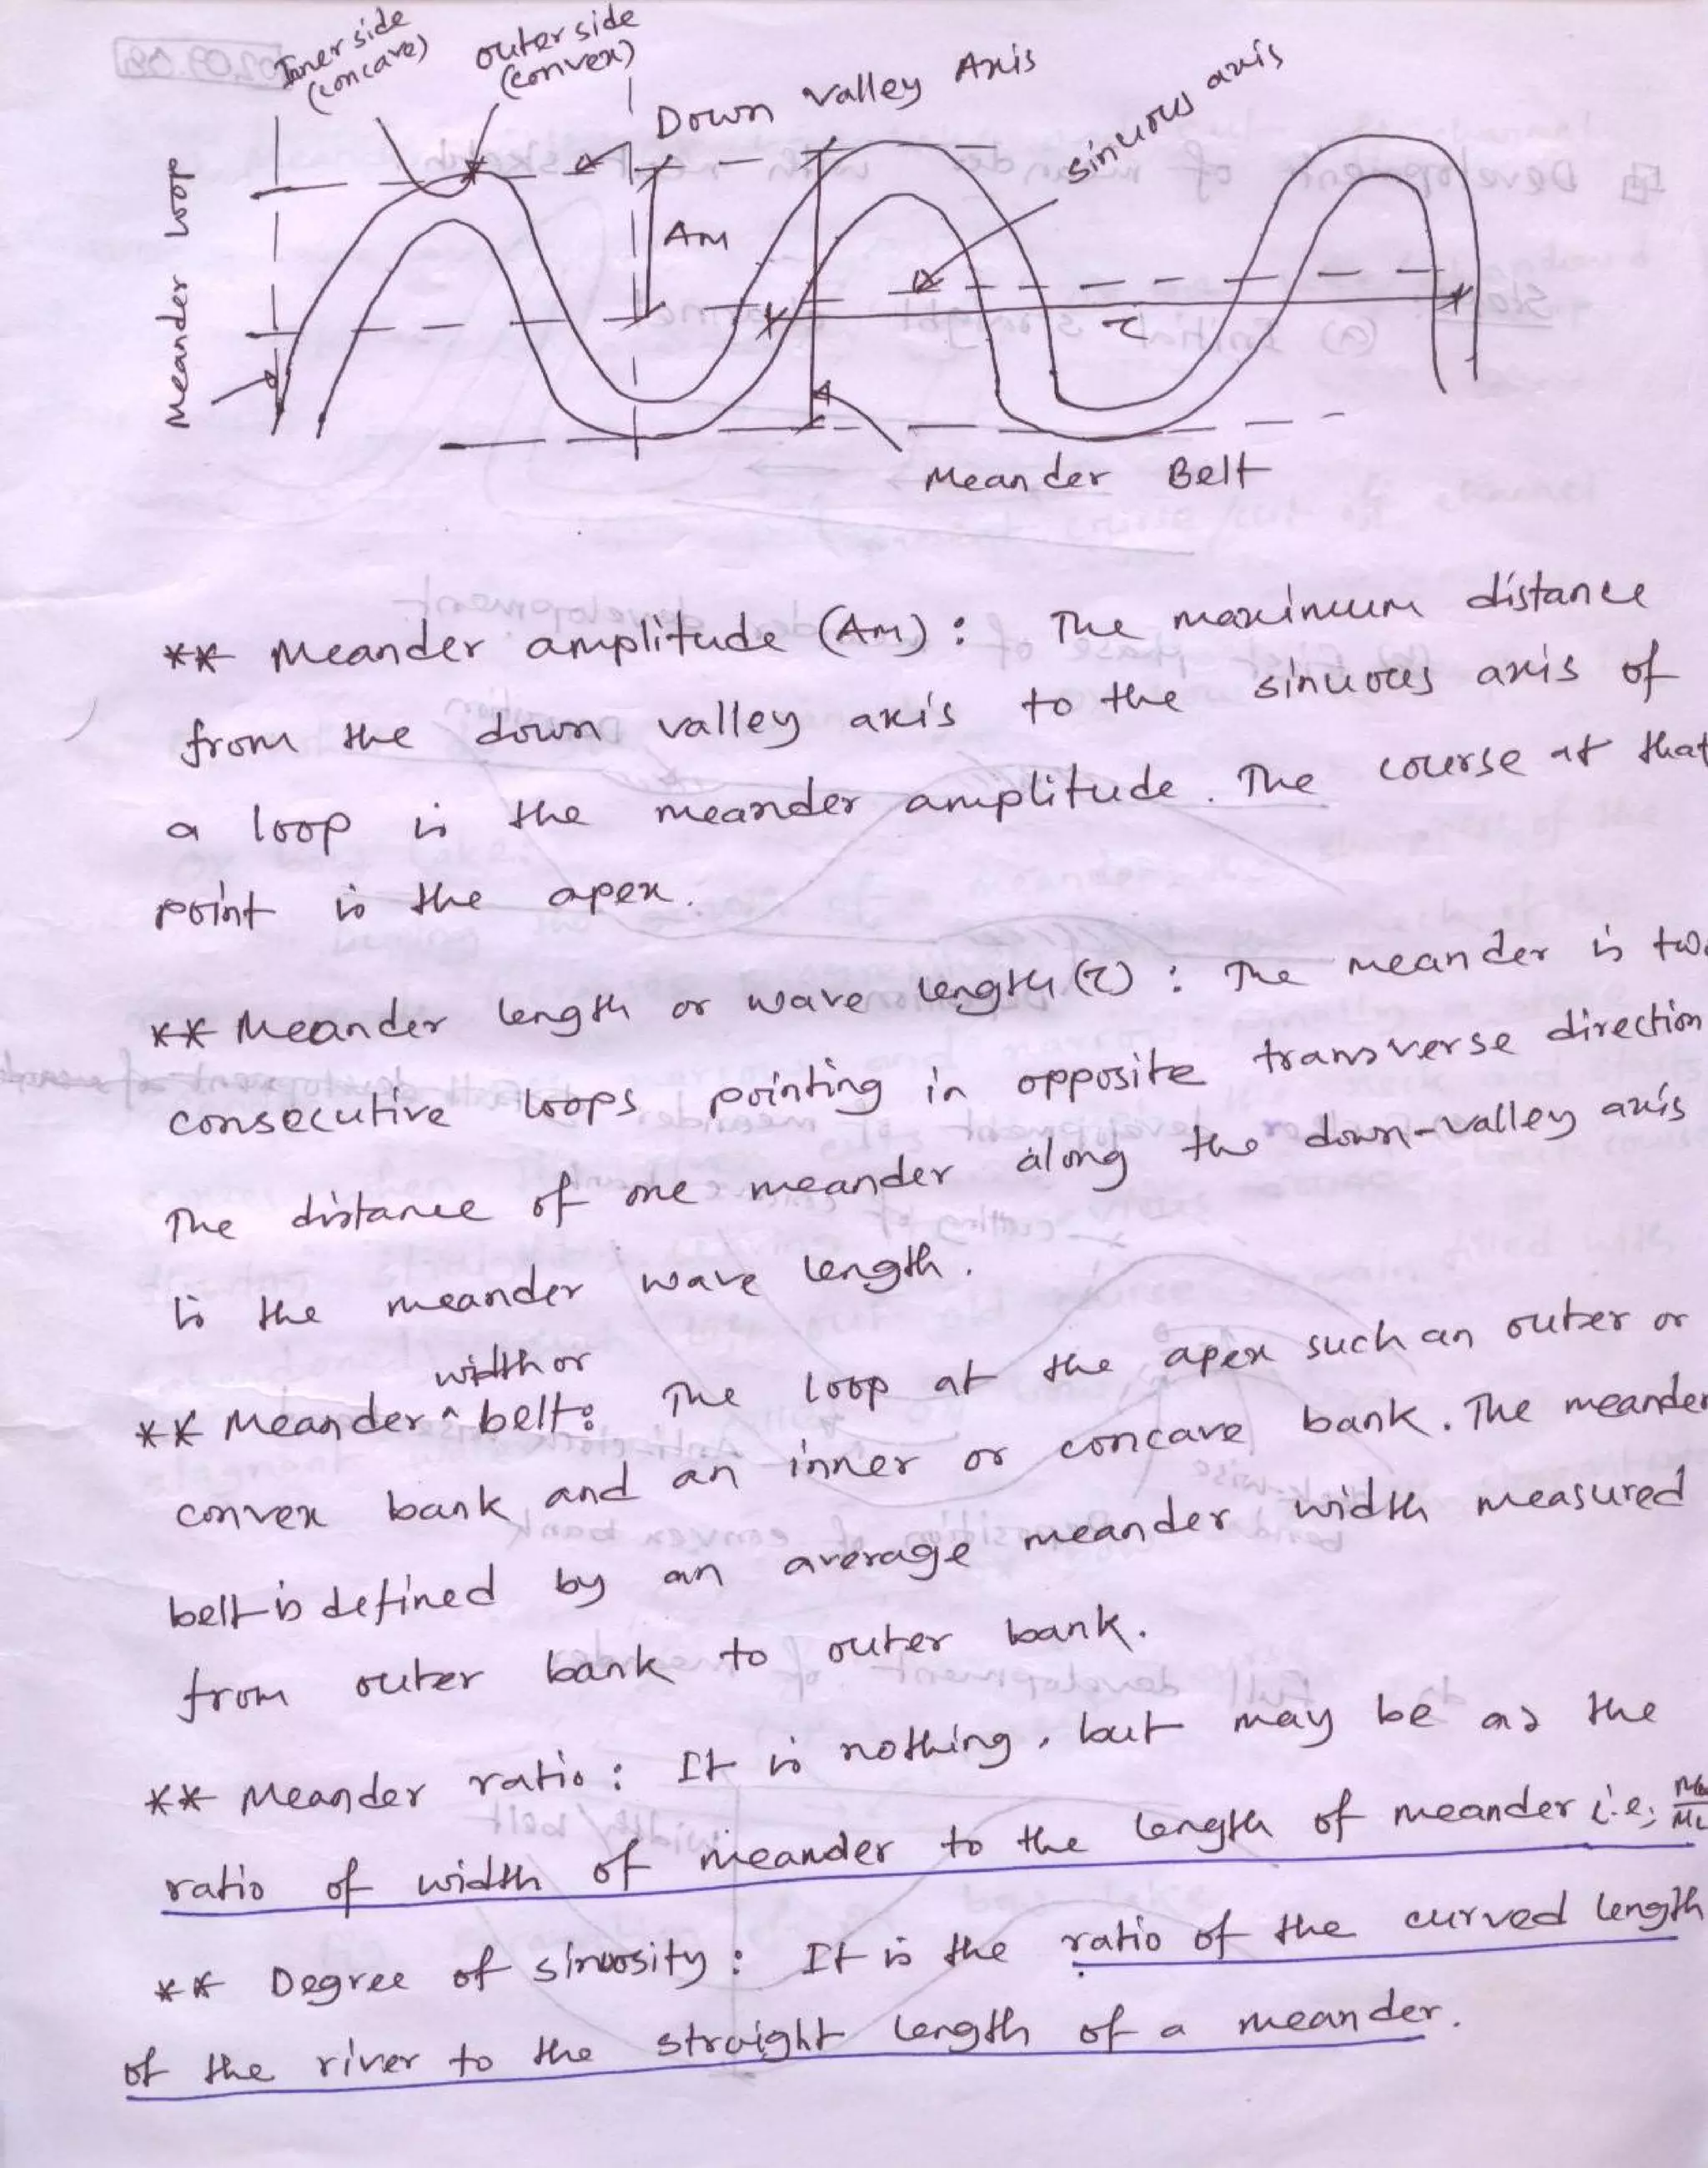 Inner side
(concave)
outer side
(convex)
Down valley Axis
sinuous axis
Meander Loop
Am
τ
Meander Belt
** Meander amplitude (Am) : The maximum distance
from the down valley axis to the sinuous axis of
a loop is the meander amplitude. The course at that
point is the apex.
** Meander length or wave length (τ) : The meander is two
consecutive loops pointing in opposite transverse direction
The distance of one meander along the down-valley axis
is the meander wave length.
width or
** Meander ^ belt: The loop at the apex such an outer or
convex bank and an inner or concave bank. The meander
belt is defined by an average meander width measured
from outer bank to outer bank.
** Meander ratio : It is nothing, but may be as the
ratio of width of meander to the length of meander i.e;
** Degree of sinuosity : It is the ratio of the curved length
of the river to the straight length of a meander.